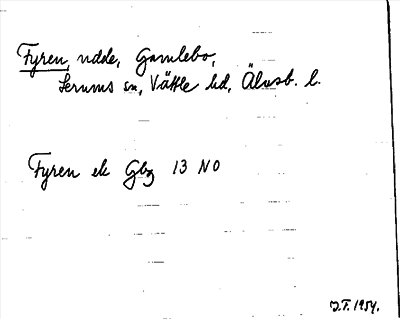 Fyren, udde, Gamlebo,
Lerums sn, Vättle hd, Älvsb. l.
Fyren ek Gbg 13 NO
J.F. 1954.